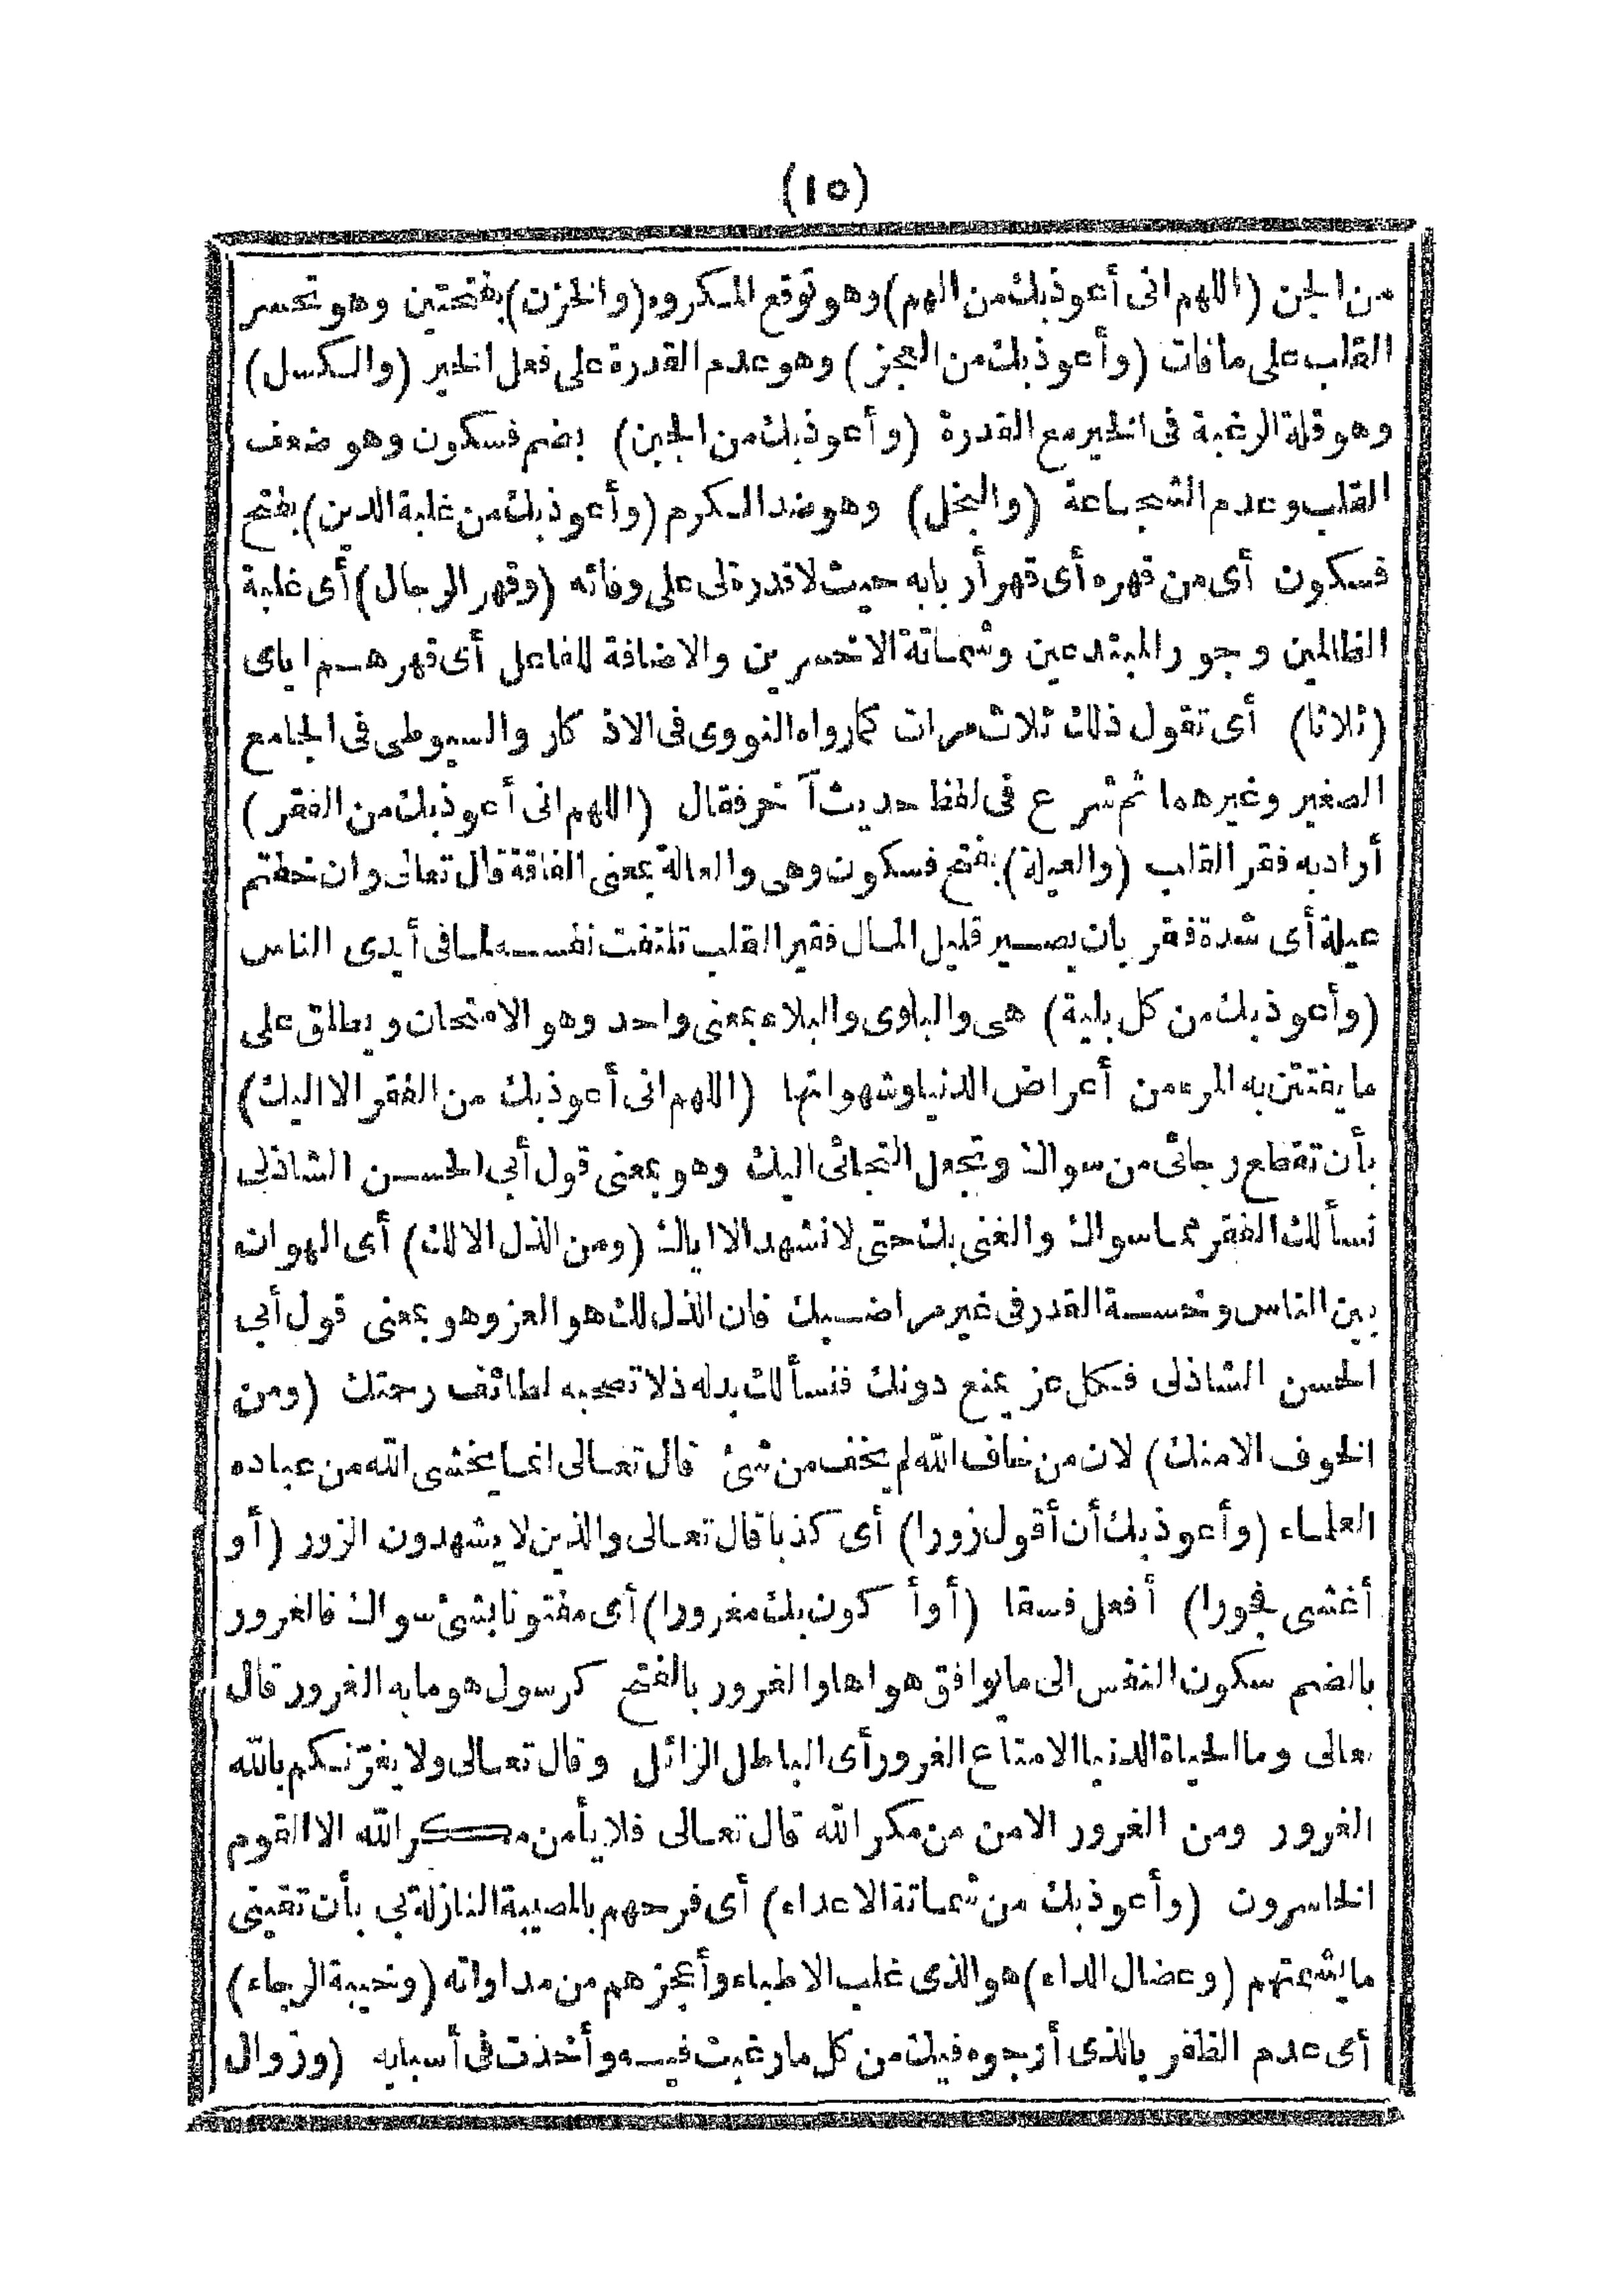 (١٥)
من الجن (اللهم انى أعوذبك من الهم) وهو توقع المكروه (والحزن) بفتحتين وهو تحسر
القلب على ما فات (وأعوذ بك من العجز) وهو عدم القدرة على فعل الخير (والكسل)
وهو قلة الرغبة فى الخير مع القدرة (وأعوذ بك من الجبن) بضم فسكون وهو ضعف
القلب وعدم الشجاعة (والبخل) وهو ضد الكرم (وأعوذ بك من غلبة الدين) بفتح
فسكون أى من قهره أى قهر أربابه حيث لا قدرة لى على وفائه (وقهر الرجال) أى غلبة
الظالمين وجور المبتدعين وشماتة الاخسرين والاضافة للفاعل أى قهرهم اياى
(ثلاثا) أى تقول ذلك ثلاث مرات كما رواه النووى فى الاذكار والسيوطى فى الجامع
الصغير وغيرهما ثم شرع فى لفظ حديث آخر فقال (اللهم انى أعوذ بك من الفقر)
أراد به فقر القلب (والعيلة) بفتح فسكون وهى والعالة بمعنى الفاقة قال تعالى وان خفتم
عيلة أى شدة فقر بان يصير قليل المال فقير القلب تلتفت نفسه لما فى أيدى الناس
(وأعوذ بك من كل بلية) هى والبلوى والبلاء بمعنى واحد وهو الامتحان ويطلق على
ما يفتتن به المرء من أعراض الدنيا وشهواتها (اللهم انى أعوذ بك من الفقر الا اليك)
بأن تقطع رجائى من سواك وتجعل التجائى اليك وهو بمعنى قول أبى الحسن الشاذلى
نسألك الفقر مما سواك والغنى بك حتى لا نشهد الا اياك (ومن الذل الا لك) أى الهوان
بين الناس وخسة القدر فى غير مراضيك فان الذل لك هو العز وهو بمعنى قول أبى
الحسن الشاذلى فكل عز يمنع دونك فنسألك بدله ذلا تصحبه لطائف رحمتك (ومن
الخوف الا منك) لان من خاف الله لم يخف من شئ قال تعالى انما يخشى الله من عباده
العلماء (وأعوذ بك أن أقول زورا) أى كذبا قال تعالى والذين لا يشهدون الزور (أو
أغشى فجورا) أفعل فسقا (أو أكون بك مغرورا) أى مفتونا بشئ سواك فالغرور
بالضم سكون النفس الى ما يوافق هواها والغرور بالفتح كرسول هو ما به الغرور قال
تعالى وما الحياة الدنيا الا متاع الغرور أى الباطل الزائل وقال تعالى ولا يغرّنكم بالله
الغرور ومن الغرور الامن من مكر الله قال تعالى فلا يأمن مكر الله الا القوم
الخاسرون (وأعوذ بك من شماتة الاعداء) أى فرحهم بالمصيبة النازلة بى بأن تقينى
ما يشمتهم (وعضال الداء) هو الذى غلب الاطباء وأعجزهم من مداواته (وخيبة الرجاء)
أى عدم الظفر بالذى أرجوه فيك من كل ما رغبت فيه وأخذت فى أسبابه (وزوال